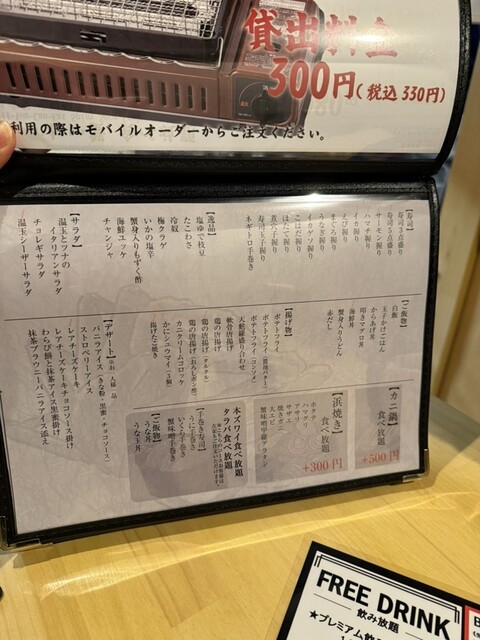 貸出料金
300円(税込330円)
利用の際はモバイルオーダーからご注文ください。
【寿司】
寿司5点盛り
寿司3点盛り
サーモン握り
ハマチ握り
イカ握り
えび握り
まぐろ握り
うなぎ握り
イカゲソ握り
こはだ握り
ほたて握り
煮穴子握り
寿司玉子握り
ネギトロ手巻き
【逸品】
塩ゆで枝豆
たこわさ
冷奴
梅クラゲ
いかの塩辛
蟹身入りもずく酢
海鮮ユッケ
チャンジャ
【サラダ】
温玉とツナの
イタリアンサラダ
チョレギサラダ
温玉シーザーサラダ
【ご飯物】
白飯
玉子かけごはん
からあげ丼
叩きマグロ丼
海鮮丼
蟹身入りうどん
赤だし
【揚げ物】
ポテトフライ
ポテトフライ(コンソメ)
天麩羅盛り合わせ
軟骨唐揚げ
鶏の唐揚げ
鶏の唐揚げ(タルタル)
鶏の唐揚げ(おろしポン酢)
カニクリームコロッケ
かにシュウマイ(3個)
揚げたこ焼き
【デザート】
バニラアイス(きな粉・黒蜜・チョコソース)
ストロベリーアイス
レアチーズケーキ
レアチーズケーキチョコソース掛け
わらび餅と抹茶アイス黒蜜掛け
抹茶ブラウニーバニラアイス添え
【カニ鍋】
食べ放題
+500円
【浜焼き】
食べ放題
+300円
ホタテ
ハマグリ
アサリ
サザエ
焼ガニ
大エビ
蟹味噌甲羅グラタン
本ズワイ食べ放題
タラバ食べ放題
【手巻き寿司】
うに手巻き
いくら手巻き
蟹味噌手巻き
【ご飯物】
うな丼
うな玉丼
FREE DRINK
飲み放題
★プレミアム飲